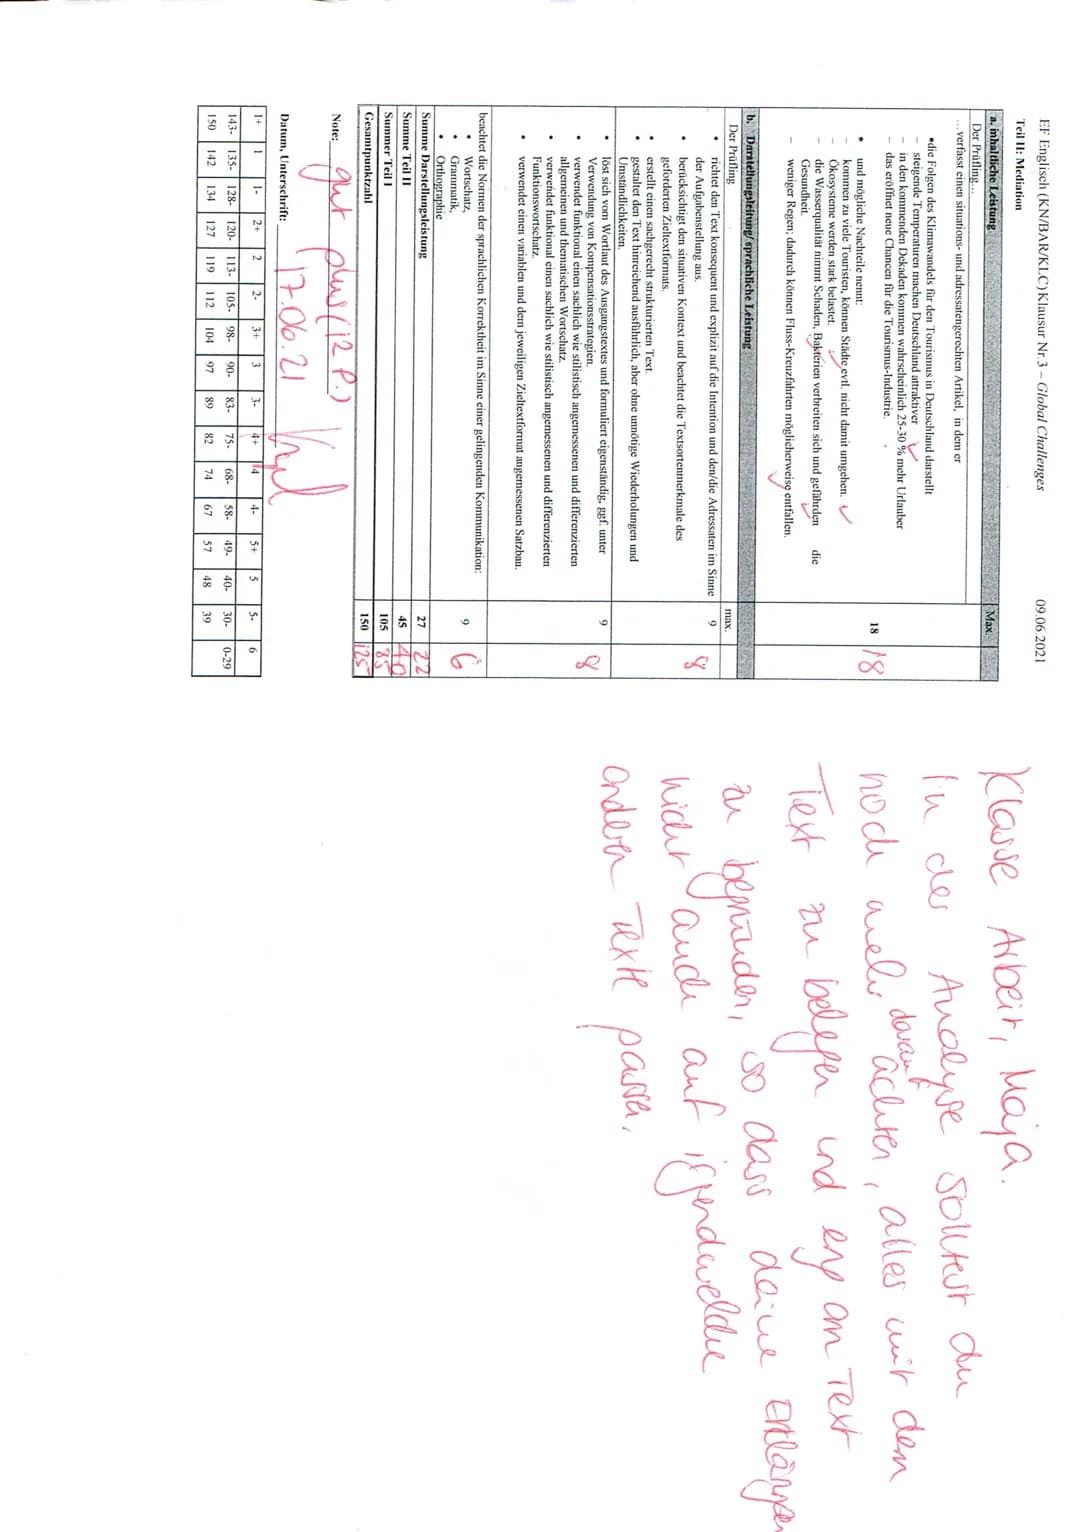 EF Englisch (KN/BAR/KLC) Klausur Nr.3 – Global Challenges 09.06.2021
Teil II: Mediation
a. inhaltliche Leistung Max.
Der Prüfling...
…verfasst einen situations- und adressatengerechten Artikel, in dem er
•die Folgen des Klimawandels für den Tourismus in Deutschland darstellt
– steigende Temperaturen machen Deutschland attraktiver
– in den kommenden Dekaden kommen wahrscheinlich 25-30 % mehr Urlauber
– das eröffnet neue Chancen für die Tourismus-Industrie.
• und mögliche Nachteile nennt: 18 18
– kommen zu viele Touristen, können Städte evtl. nicht damit umgehen.
– Ökosysteme werden stark belastet.
– die Wasserqualität nimmt Schaden, Bakterien verbreiten sich und gefährden die
Gesundheit.
– weniger Regen; dadurch können Fluss-Kreuzfahrten möglicherweise entfallen.
b. Darstellungsleitung/ sprachliche Leistung
Der Prüfling max.
• richtet den Text konsequent und explizit auf die Intention und den/die Adressaten im Sinne 9
der Aufgabenstellung aus.
• berücksichtigt den situativen Kontext und beachtet die Textsortenmerkmale des 8
geforderten Zieltextformats.
• erstellt einen sachgerecht strukturierten Text.
• gestaltet den Text hinreichend ausführlich, aber ohne unnötige Wiederholungen und
Umständlichkeiten.
• löst sich vom Wortlaut des Ausgangstextes und formuliert eigenständig, ggf. unter 9
Verwendung von Kompensationsstrategien. 8
• verwendet funktional einen sachlich wie stilistisch angemessenen und differenzierten
allgemeinen und thematischen Wortschatz.
• verwendet funktional einen sachlich wie stilistisch angemessenen und differenzierten
Funktionswortschatz.
• verwendet einen variablen und dem jeweiligen Zieltextformat angemessenen Satzbau.
beachtet die Normen der sprachlichen Korrektheit im Sinne einer gelingenden Kommunikation:
• Wortschatz, 9 6
• Grammatik,
• Orthographie
Summe Darstellungsleistung 27 22
Summe Teil II 45 40
Summer Teil I 105 85
Gesamtpunktzahl 150 125
Note: gut plus (12 P.)
Datum, Unterschrift: 17.06.21
1+ 1 1- 2+ 2 2- 3+ 3 3- 4+ 4 4- 5+ 5 5- 6
143- 135- 128- 120- 113- 105- 98- 90- 83- 75- 68- 58- 49- 40- 30- 0-29
150 142 134 127 119 112 104 97 89 82 74 67 57 48 39
Klasse Arbeit, Maja.
In der Analyse solltest du
noch mehr darauf achten, alles mit dem
Text zu belegen und eng am Text
zu begründen, so dass deine Erklärungen
nicht auch auf irgendwelche
anderen Texte passen.